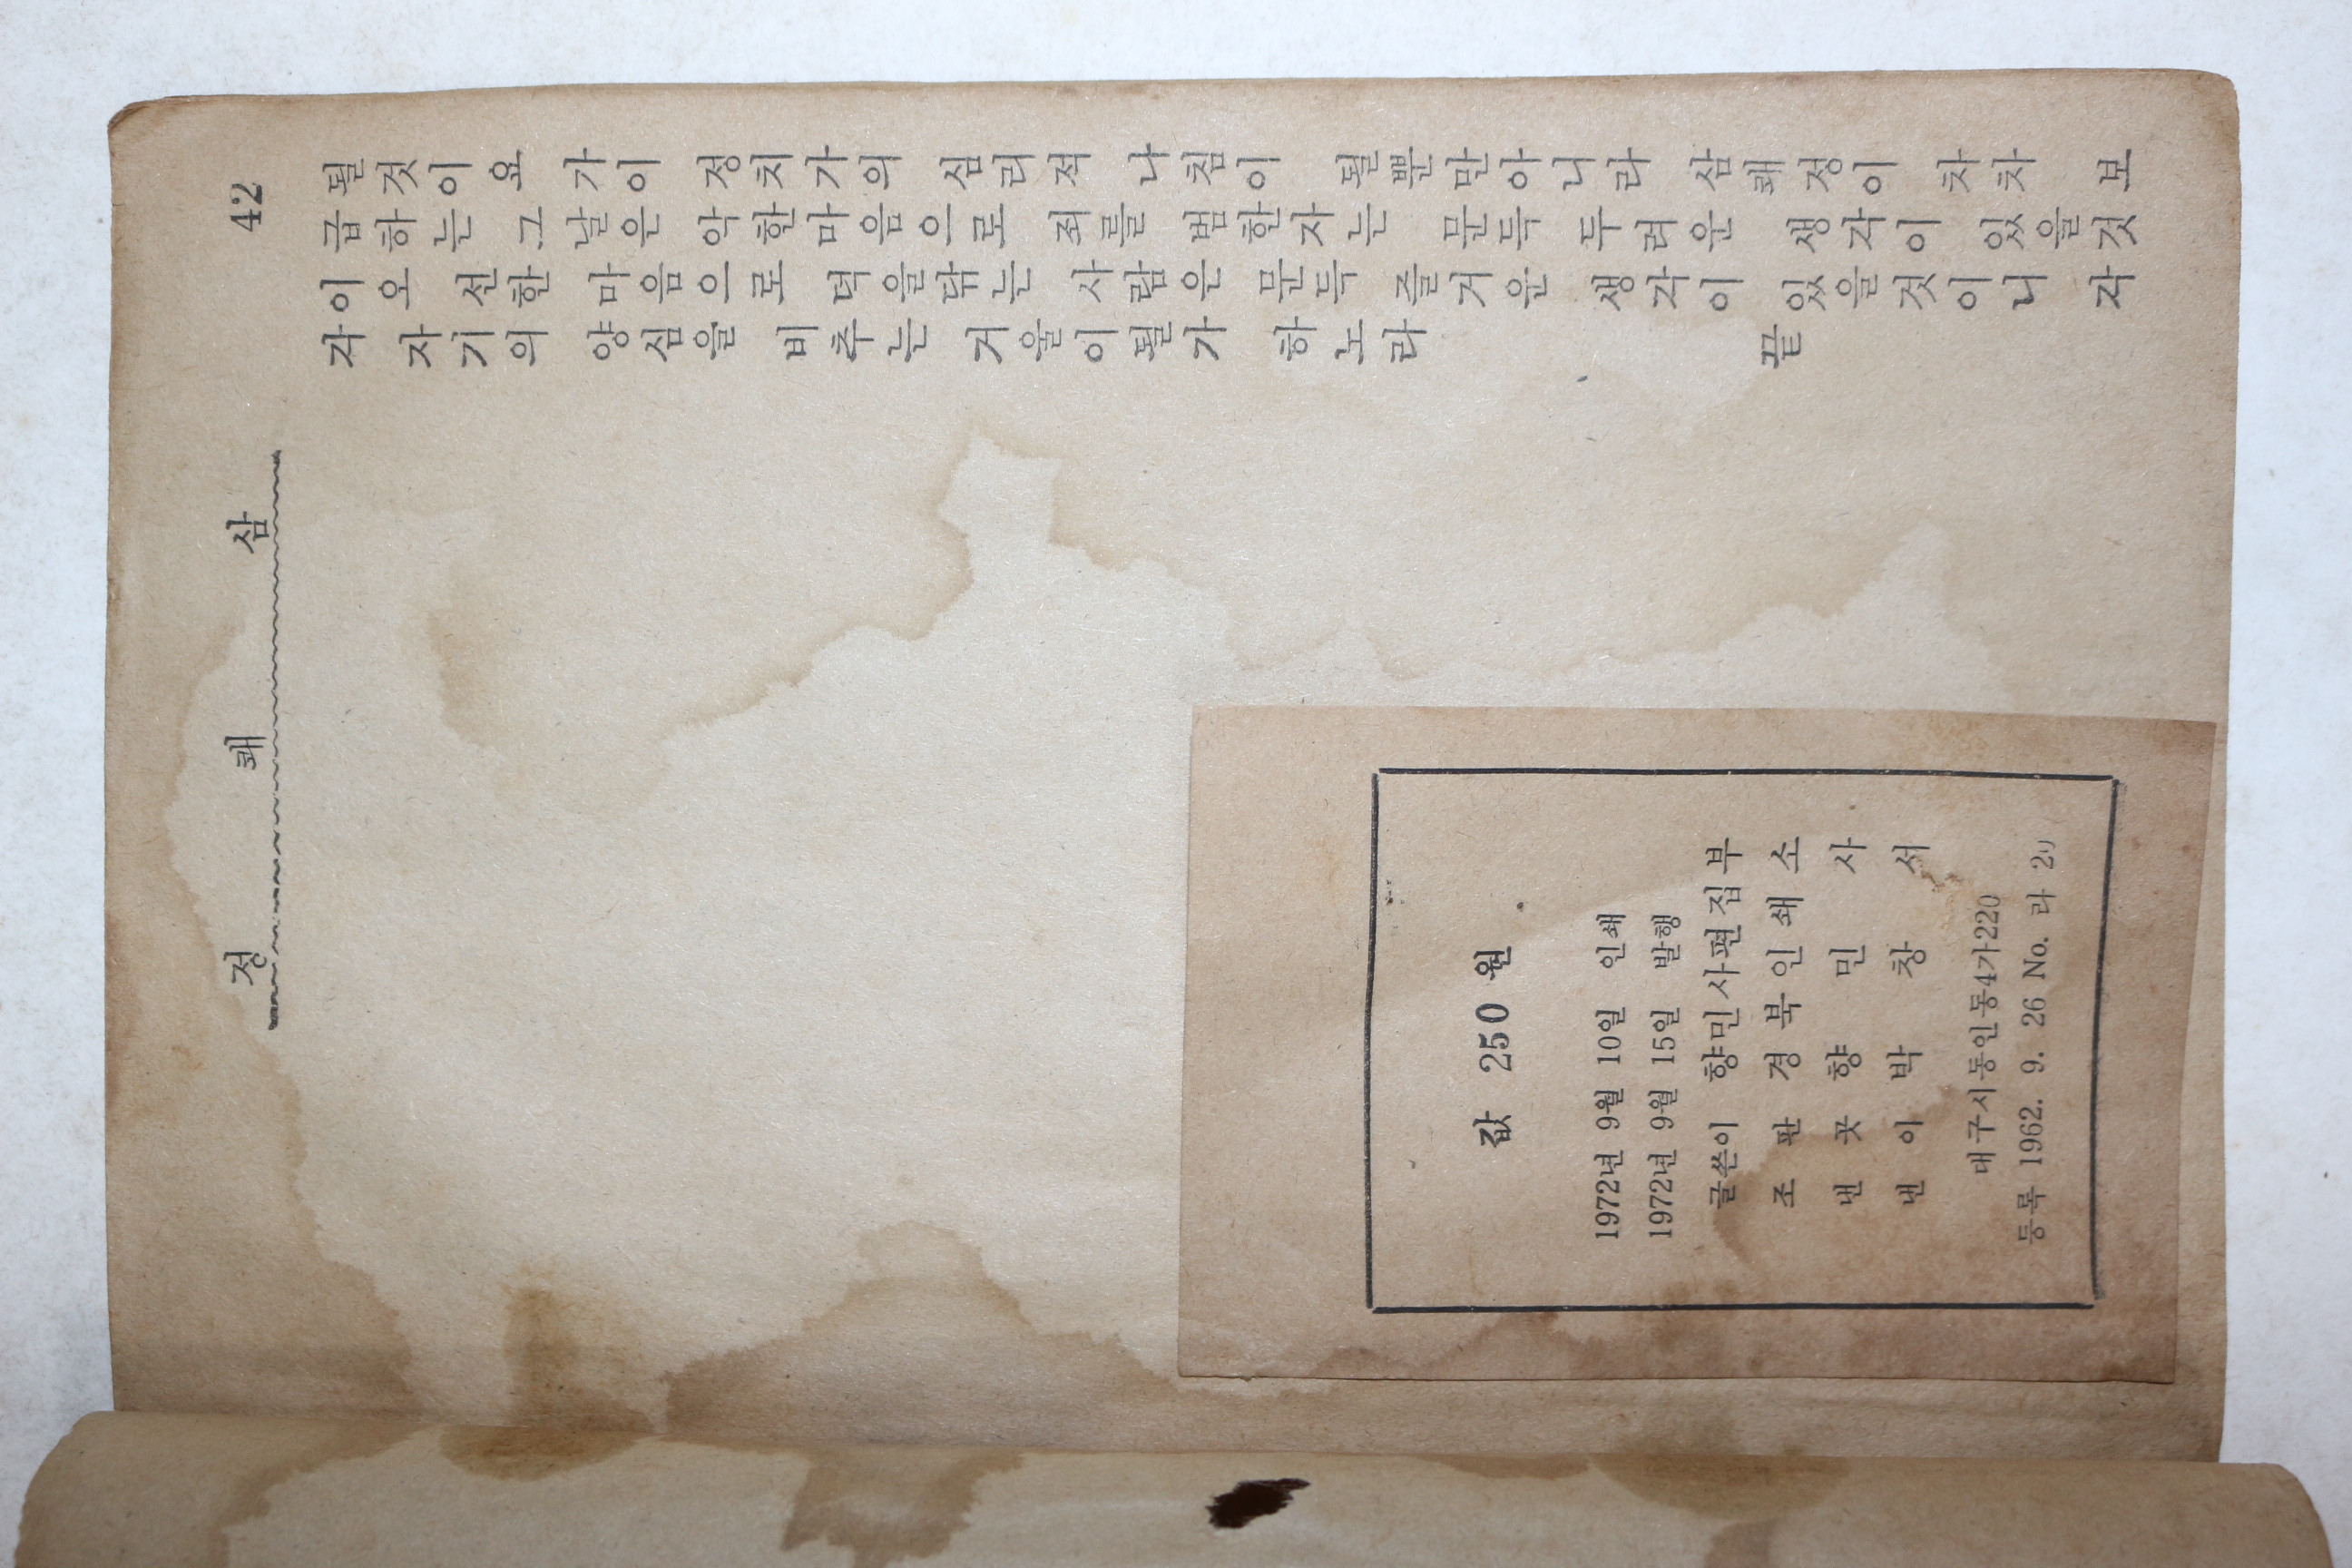 42
삼 쾌 정
될것이요 가이 정치가의 심리적 나침이 될뿐만아니라 삼쾌정이 차차 보
급하는 그날은 악한마음으로 죄를 범한자는 문득 두려운 생각이 있을것
이오 선한 마음으로 덕을닦는 사람은 문득 즐거운 생각이 있을것이니 각
자 자기의 양심을 비추는 거울이될가 하노라 끝
값 250원
1972년 9월 10일 인쇄
1972년 9월 15일 발행
글쓴이 향민사편집부
조판 경북인쇄소
낸곳 향민사
낸이 박창서
대구시동인동4가220
등록 1962. 9. 26 No. 라